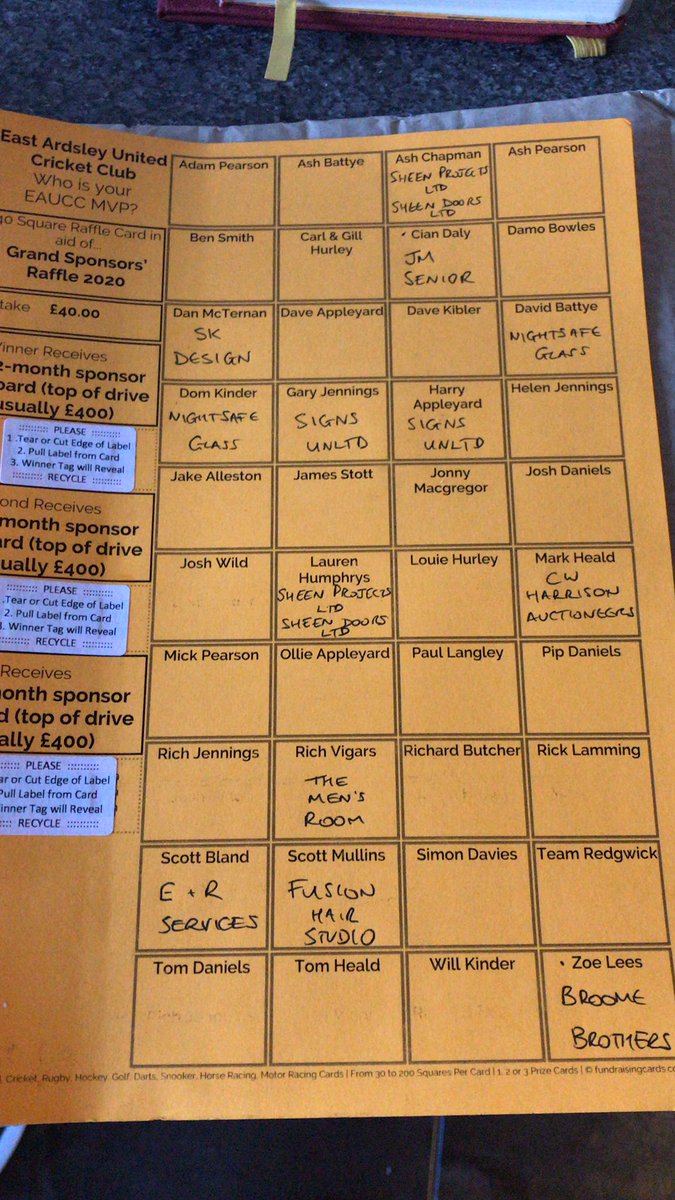 East Ardsley United
Cricket Club
Who is your
EAUCC MVP?
40 Square Raffle Card in
aid of...
Grand Sponsors'
Raffle 2020
take £40.00
inner Receives
2-month sponsor
oard (top of drive
usually £400)
PLEASE
1. Tear or Cut Edge of Label
2. Pull Label from Card
3. Winner Tag will Reveal
RECYCLE
ond Receives
month sponsor
ard (top of drive
ually £400)
PLEASE
.Tear or Cut Edge of Label
2. Pull Label from Card
3. Winner Tag will Reveal
RECYCLE
Receives
month sponsor
d (top of drive
ally £400)
PLEASE
ear or Cut Edge of Label
Pull Label from Card
Winner Tag will Reveal
RECYCLE
Adam Pearson
Ash Battye
Ash Chapman
SHEEN PROJECTS
LTD
SHEEN DOORS
LTD
Ash Pearson
Ben Smith
Carl & Gill
Hurley
Cian Daly
JM
SENIOR
Damo Bowles
Dan McTernan
SK
DESIGN
Dave Appleyard
Dave Kibler
David Battye
NIGHTSAFE
GLASS
Dom Kinder
NIGHTSAFE
GLASS
Gary Jennings
SIGNS
UNLTD
Harry
Appleyard
SIGNS
UNLTD
Helen Jennings
Jake Alleston
James Stott
Jonny
Macgregor
Josh Daniels
Josh Wild
Lauren
Humphrys
SHEEN PROJECTS
LTD
SHEEN DOORS
LTD
Louie Hurley
Mark Heald
CW
HARRISON
AUCTIONEERS
Mick Pearson
Ollie Appleyard
Paul Langley
Pip Daniels
Rich Jennings
Rich Vigars
THE
MEN'S
ROOM
Richard Butcher
Rick Lamming
Scott Bland
E + R
SERVICES
Scott Mullins
FUSION
HAIR
STUDIO
Simon Davies
Team Redgwick
Tom Daniels
Tom Heald
Will Kinder
Zoe Lees
BROOME
BROTHERS
Cricket, Rugby, Hockey, Golf, Darts, Snooker, Horse Racing, Motor Racing Cards | From 30 to 200 Squares Per Card | 1, 2 or 3 Prize Cards | © fundraisingcards.co